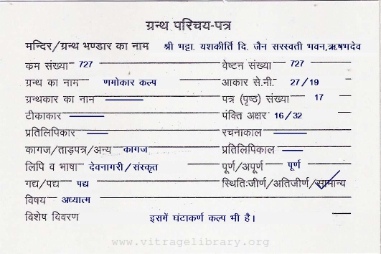 ग्रन्थ परिचय-पत्र
मन्दिर/ग्रन्थ भण्डार का नाम श्री भट्टा. यशकीर्ति दि. जैन सरस्वती भवन,ऋषभदेव
क्रम संख्या 727 वेष्टन संख्या 727
ग्रन्थ का नाम णमोकार कल्प आकार से.मी. 27/19
ग्रन्थकार का नाम पत्र (पृष्ठ) संख्या 17
टीकाकार पंक्ति अक्षर 16/32
प्रतिलिपिकार रचनाकाल
कागज/ताड़पत्र/अन्य कागज प्रतिलिपिकाल
लिपि व भाषा देवनागरी/संस्कृत पूर्ण/अपूर्ण पूर्ण
गद्य/पद्य पद्य स्थिति:जीर्ण/अतिजीर्ण/सामान्य
विषय अध्यात्म
विशेष विवरण इसमें घंटाकर्ण कल्प भी है।
www.vitragelibrary.org